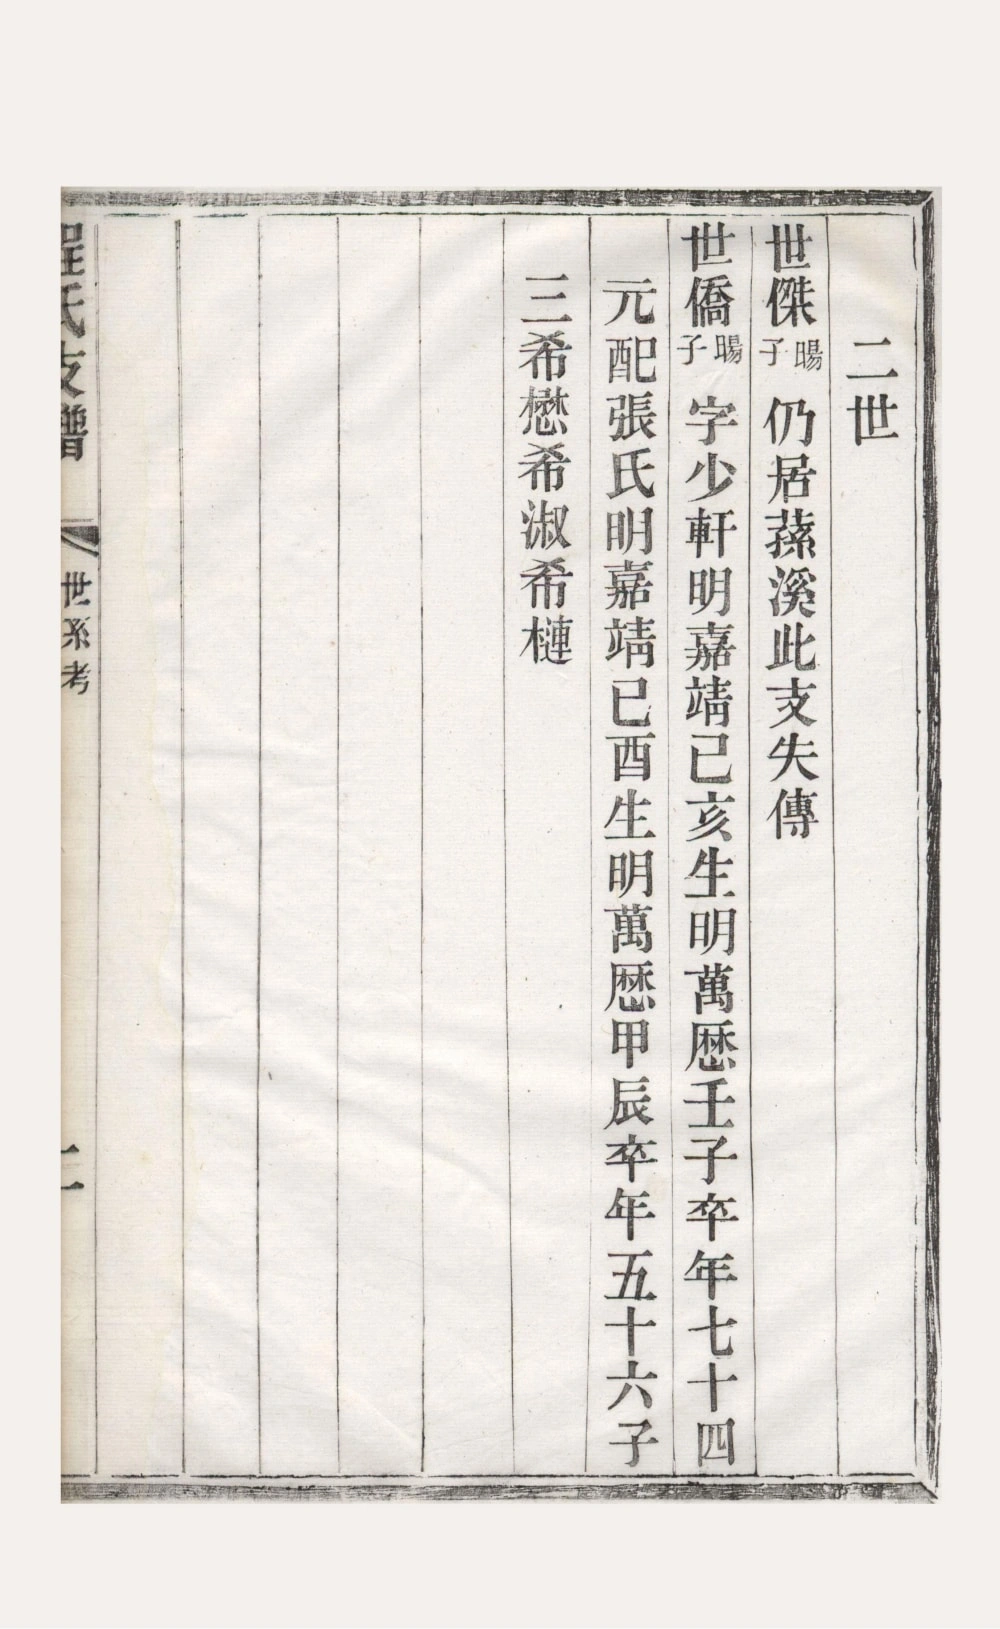 二世
世傑暘子仍居蓀溪此支失傳
世僑暘子字少軒明嘉靖己亥生明萬厯壬子卒年七十四
元配張氏明嘉靖己酉生明萬厯甲辰卒年五十六子
三希懋希淑希槤
程氏支譜 世系考 二